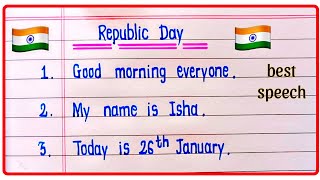 Republic Day
1. Good morning everyone.
best
speech
2. My name is Isha.
3. Today is 26th January.